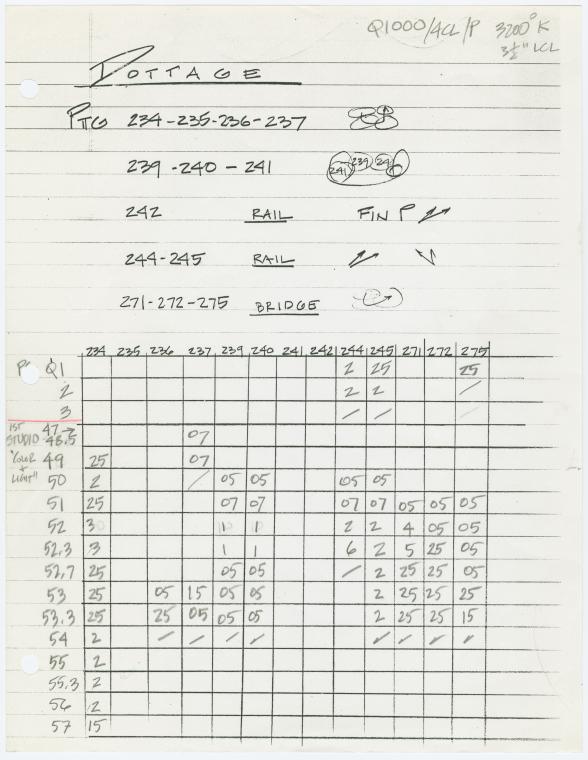 Q1000/4CL/P 3200°K
3½" LCL
DOTTAGE
PTG 234-235-236-237
239-240-241
241 239 24
242 RAIL FIN P
244-245 RAIL
271-272-275 BRIDGE
234 235 236 237 239 240 241 242 244 245 271 272 275
Q1 2 25 25
2 2 2 /
3 / / /
1ST 47→
STUDIO 48.5 07
"COLOR 49 25 07
+
LIGHT" 50 2 / 05 05 05 05
51 25 07 07 07 07 05 05 05
52 30 1 2 2 4 05 05
52.3 3 1 1 6 2 5 25 05
52.7 25 05 05 / 2 25 25 05
53 25 05 15 05 05 2 25 25 25
53.3 25 25 05 05 05 2 25 25 15
54 2 / / / / / / / /
55 2
55.3 2
56 2
57 15